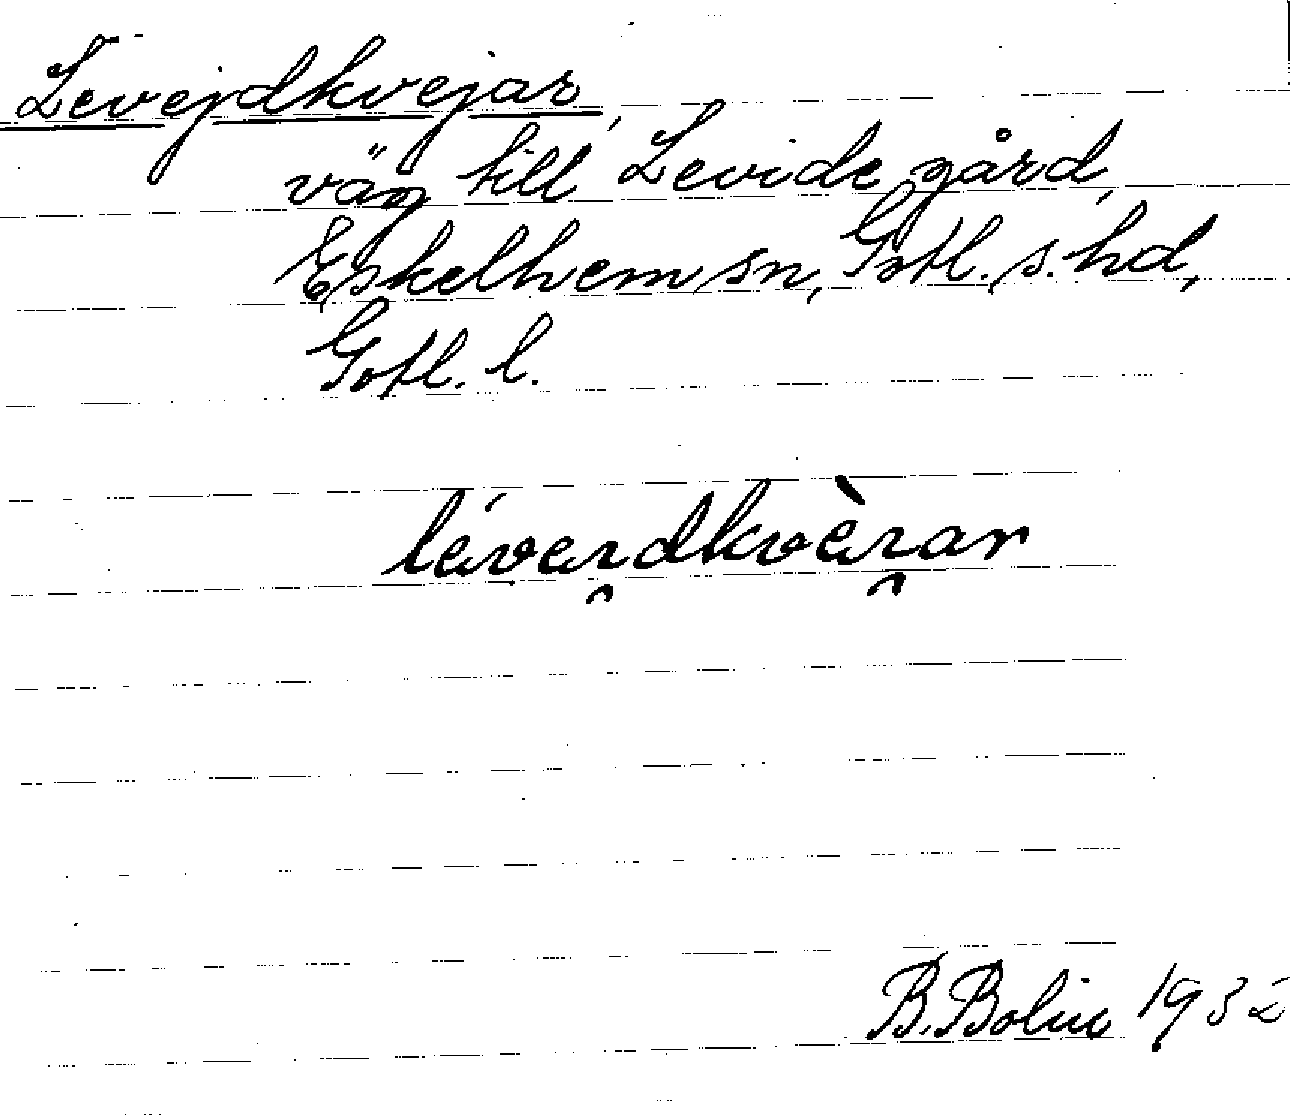 Levejdkvejar,
väg till Levide gård,
Eskelhem sn, Gotl. s. hd,
Gotl. l.
léverdkvèrar
B. Bolin 1932